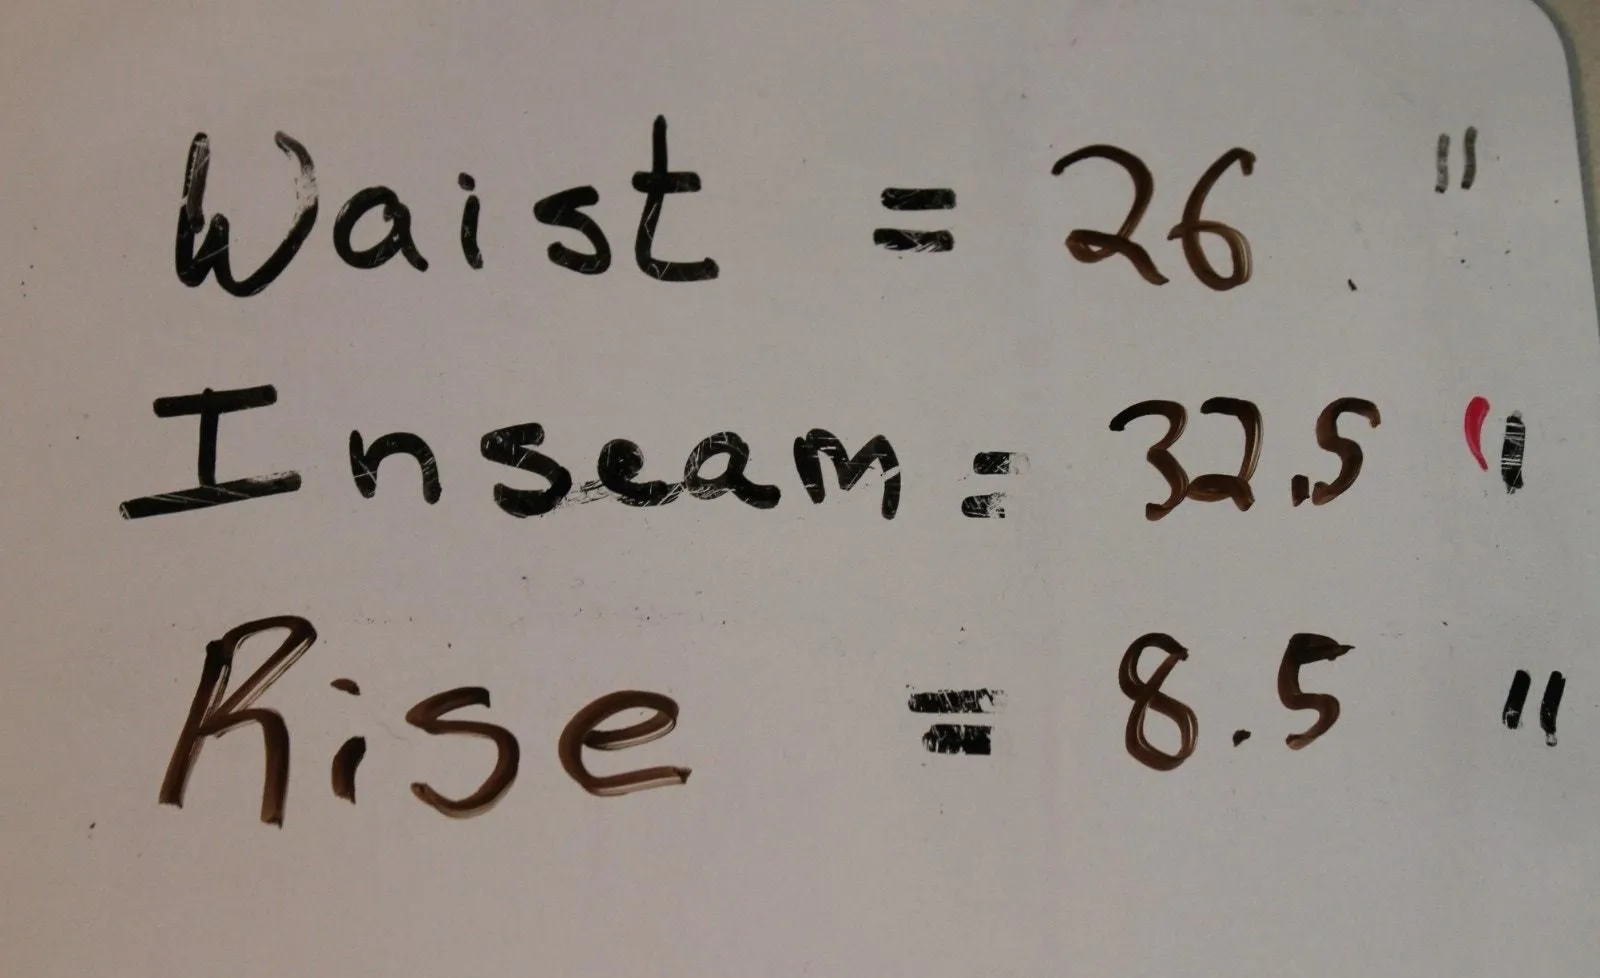 Waist = 26 "
Inseam = 32.5 "
Rise = 8.5 "